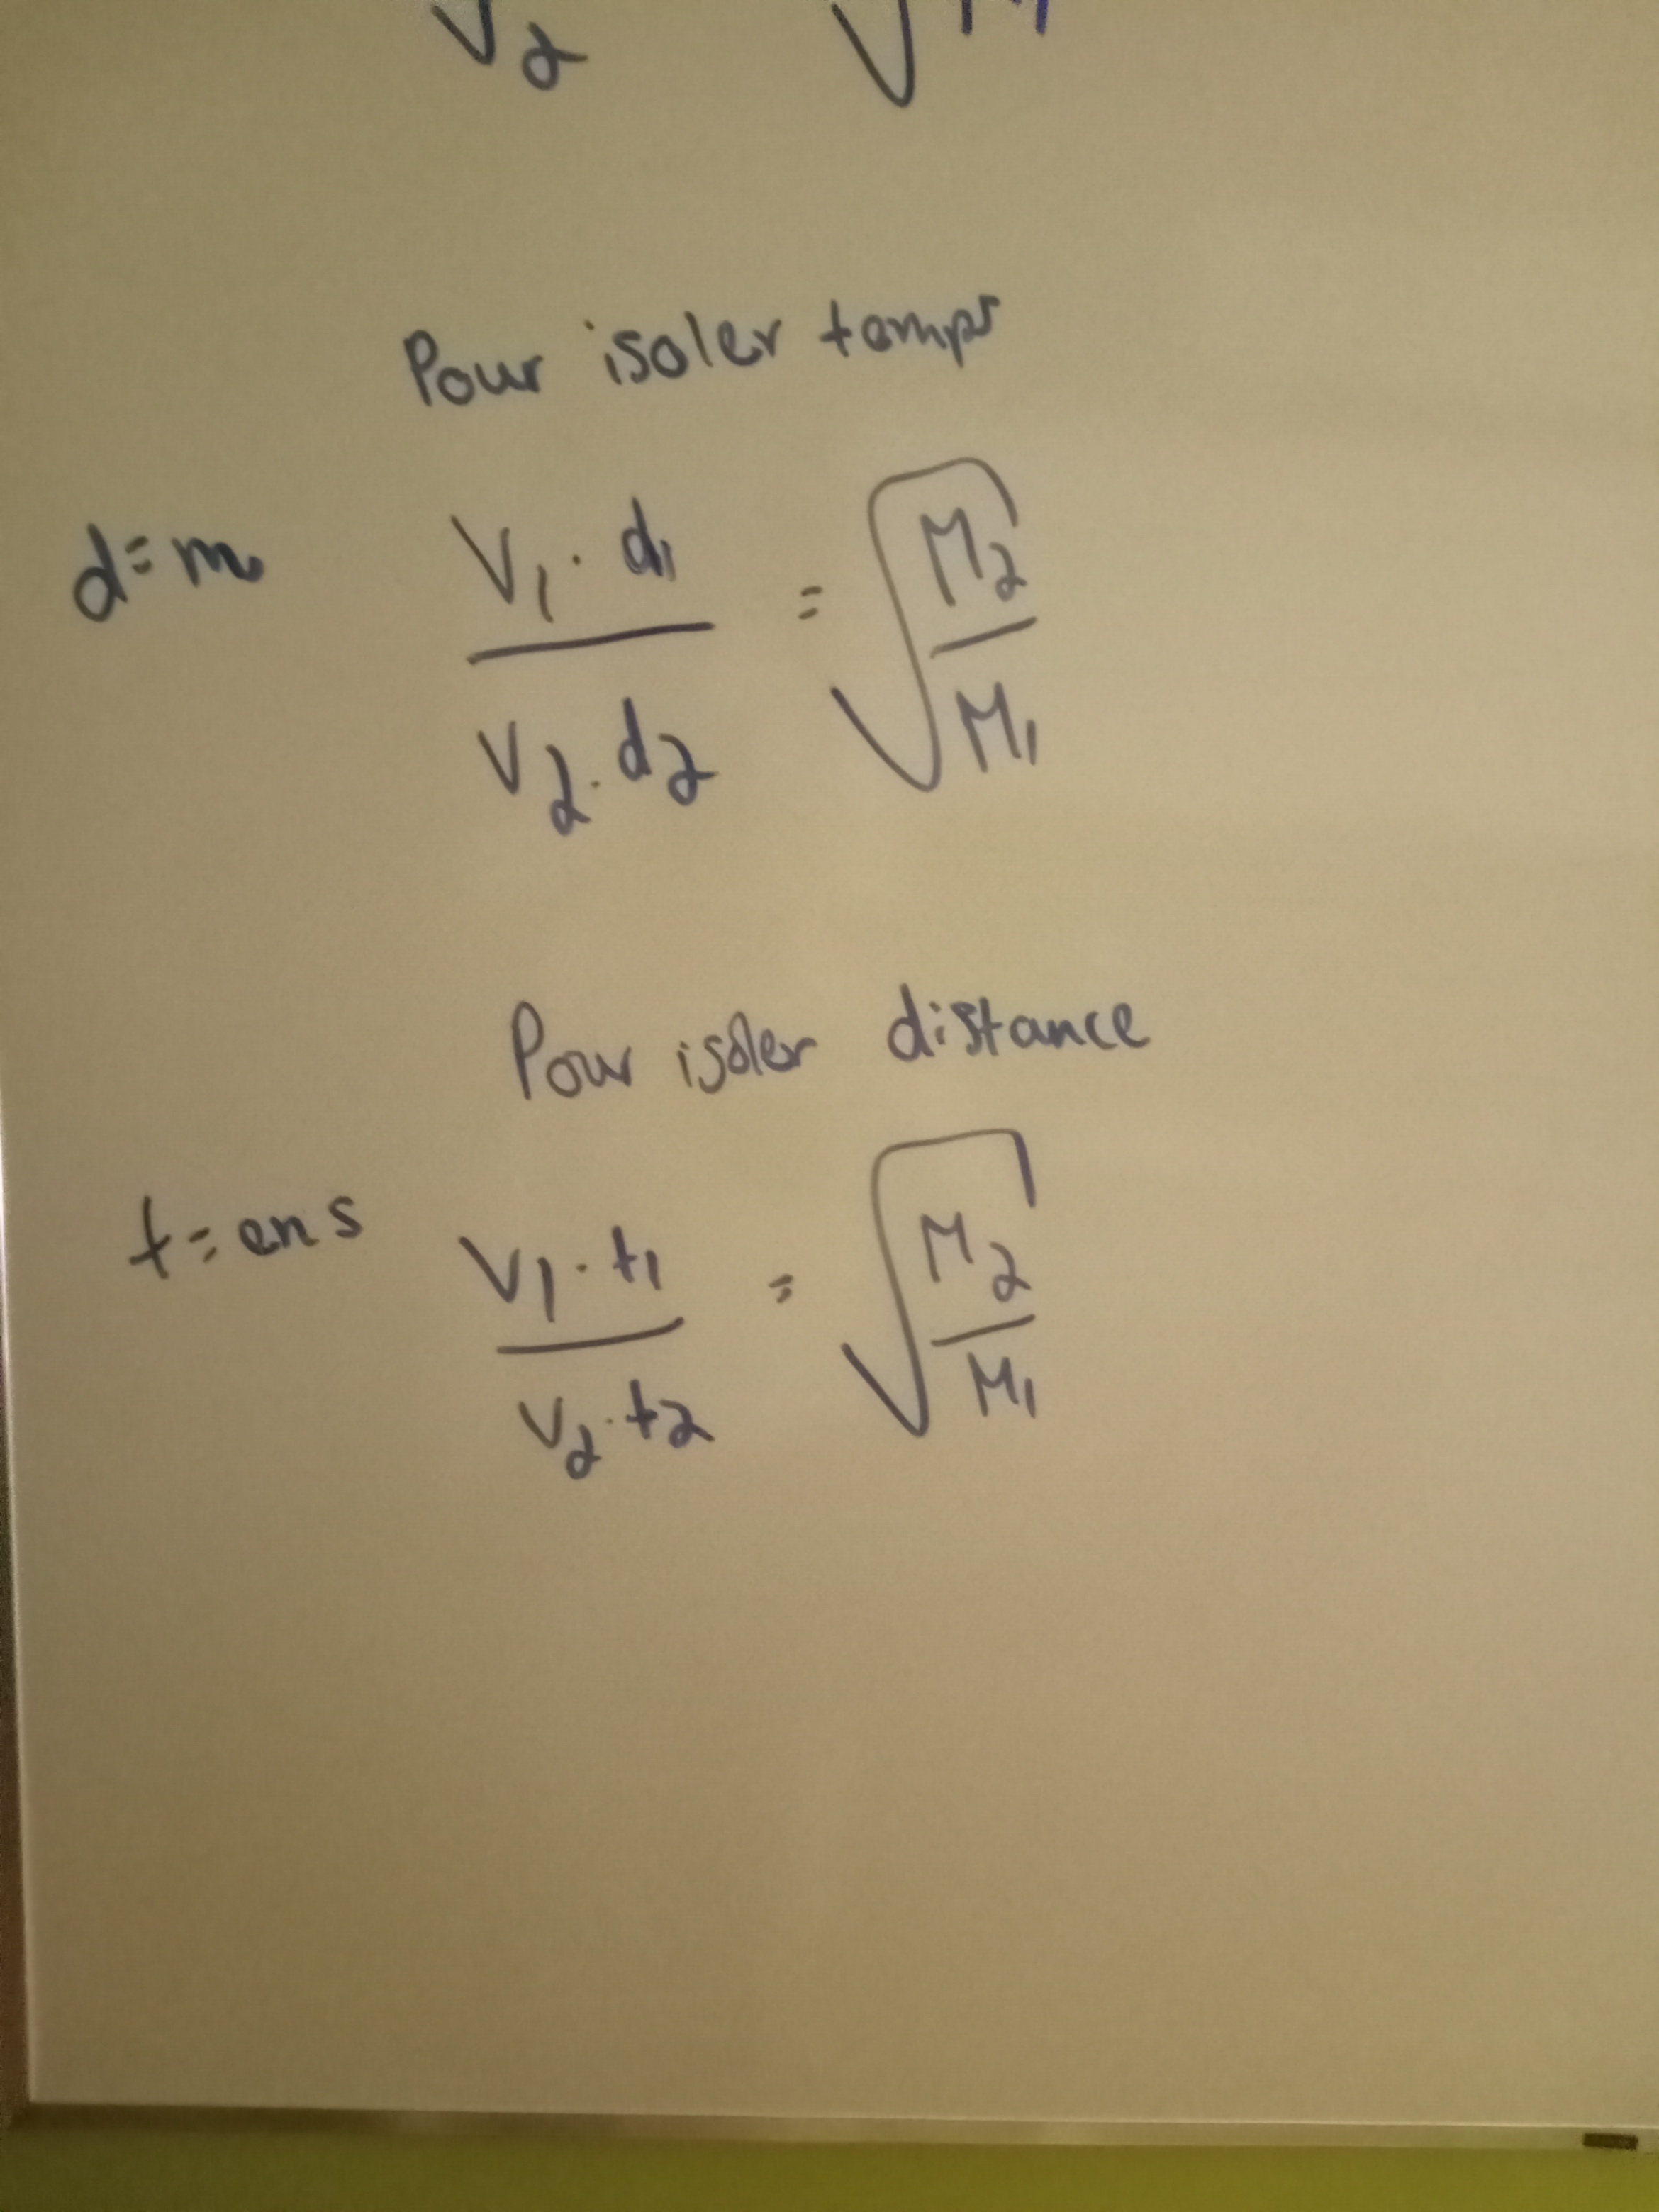 V2 √M
Pour isoler temps
d=m V1 · d1 / V2 · d2 = √(M2 / M1)
Pour isoler distance
t=en s V1 · t1 / V2 · t2 = √(M2 / M1)